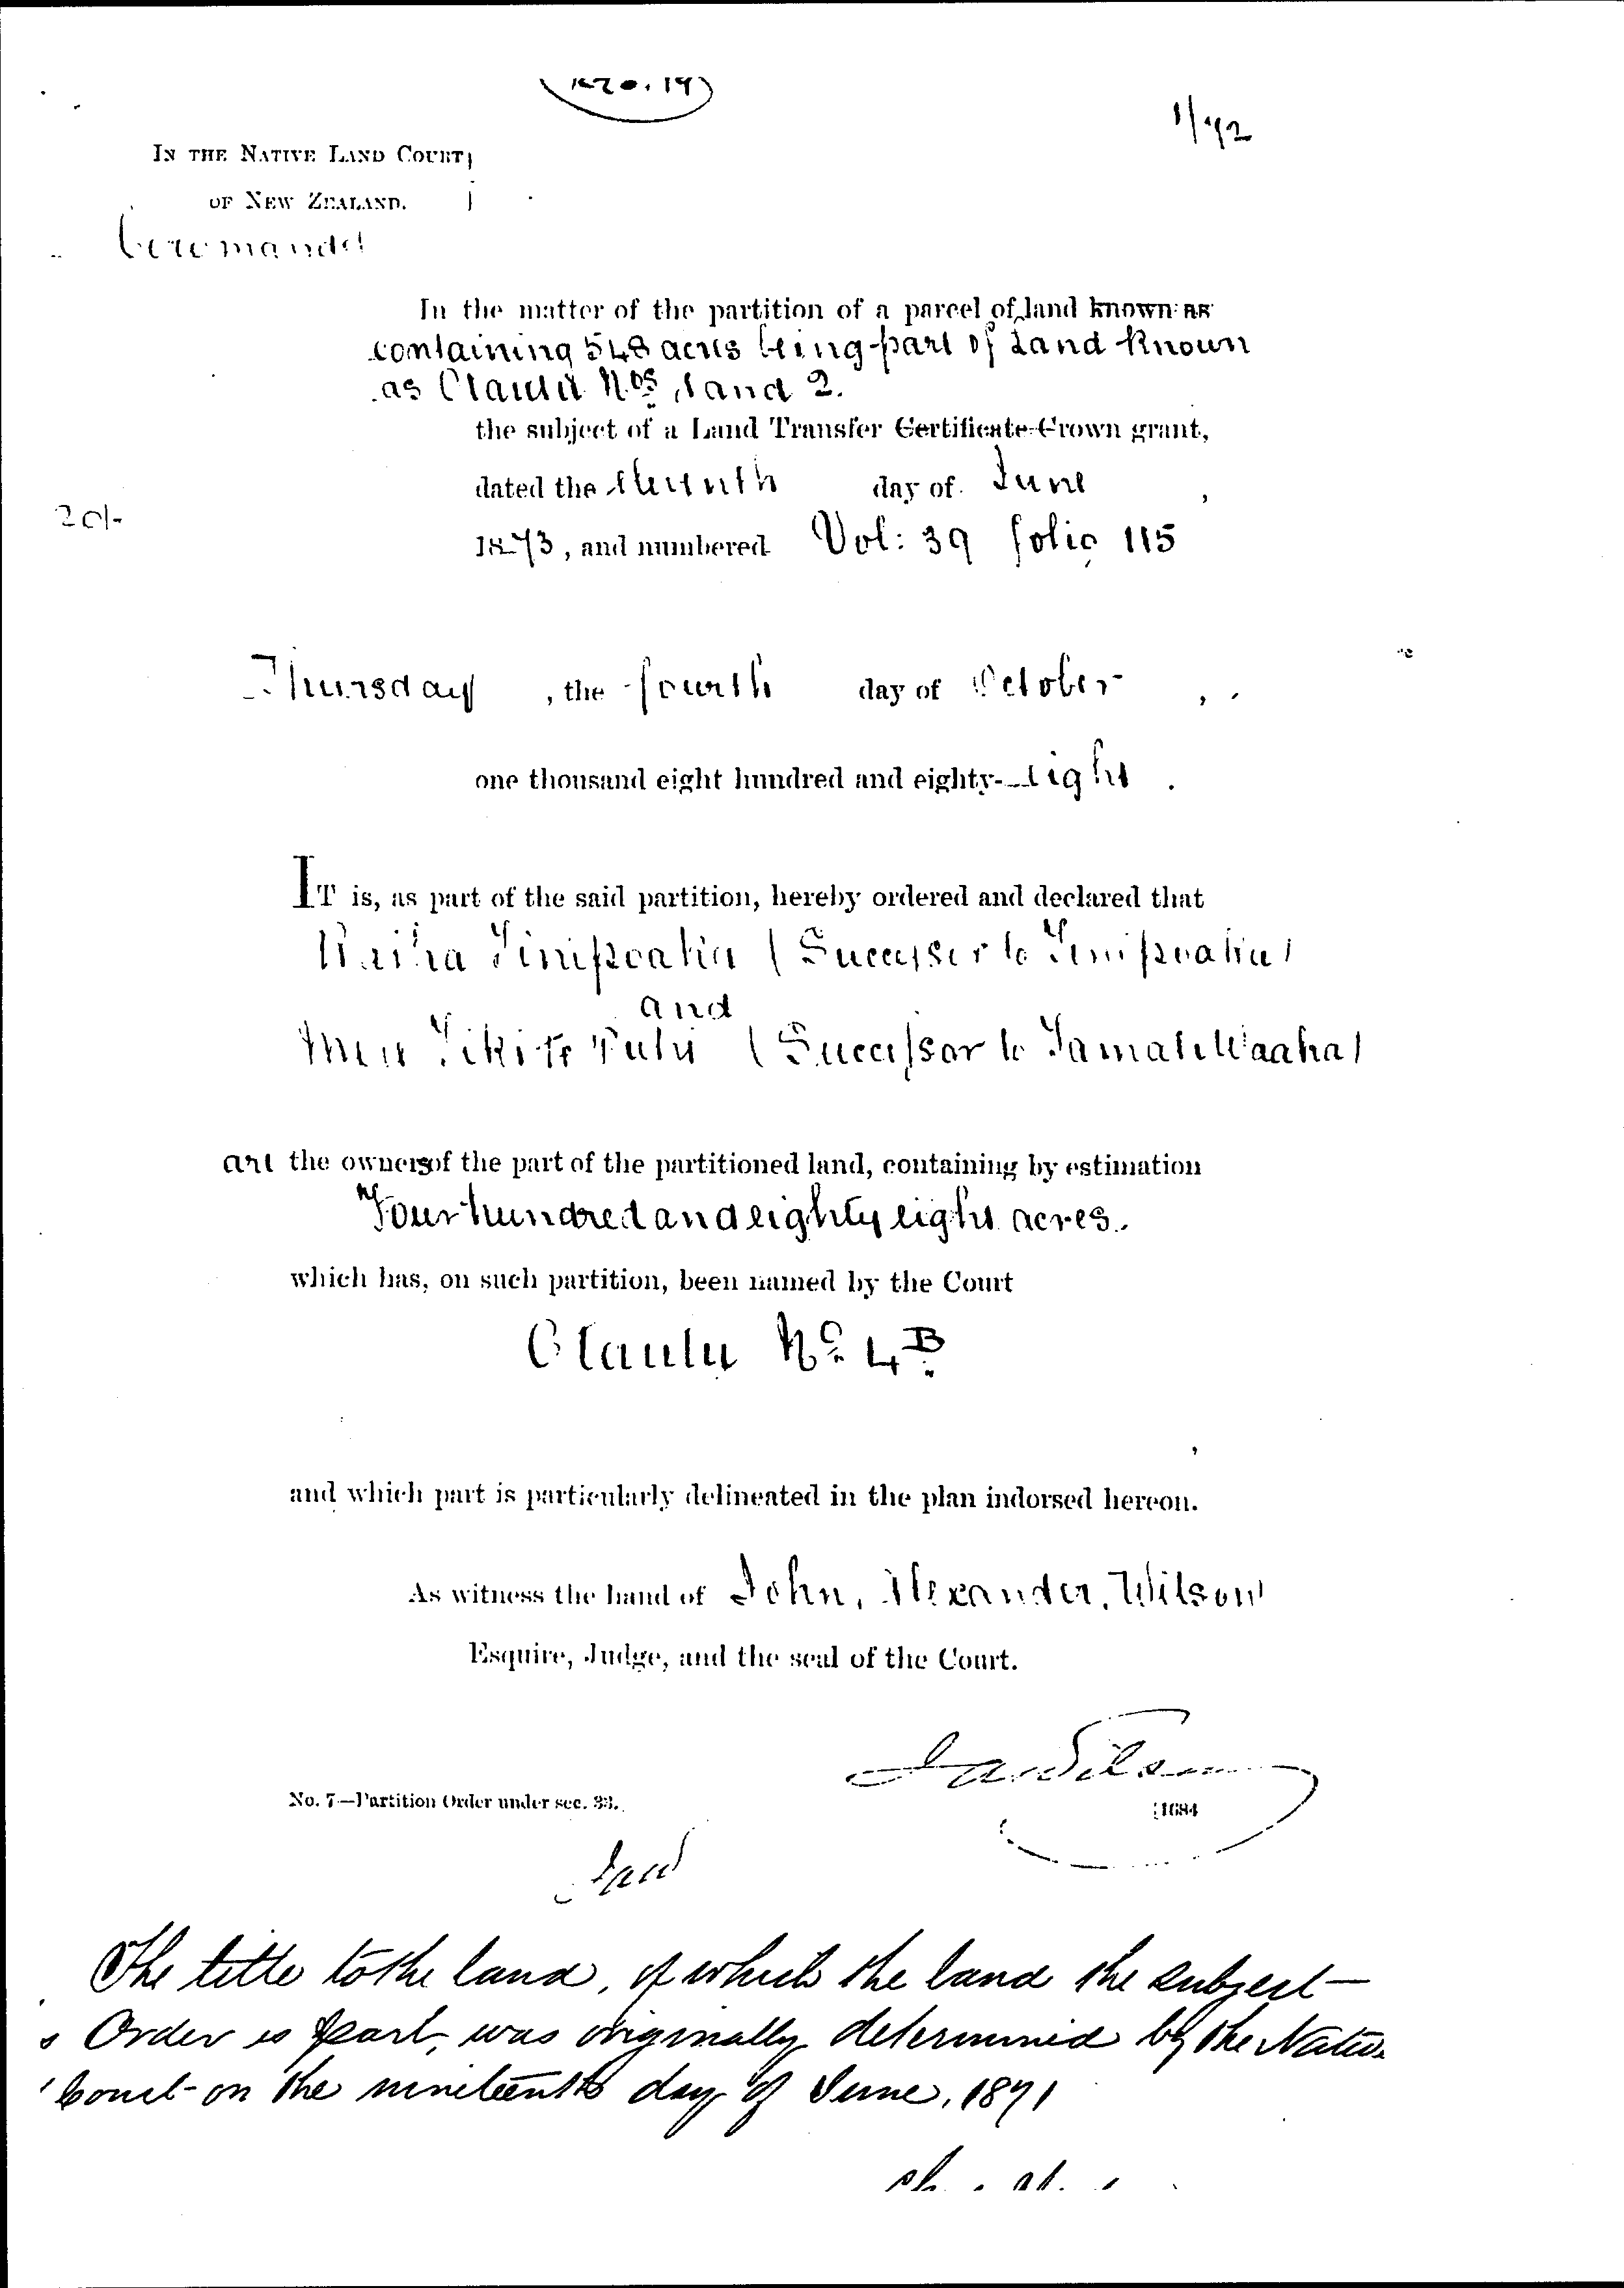 1/72
IN THE NATIVE LAND COURT
OF NEW ZEALAND.
Coromandel
In the matter of the partition of a parcel of land known as
containing 548 acres being part of Land Known
as Otautu Nos 1 and 2.
the subject of a Land Transfer Certificate Crown grant,
dated the eleventh day of June ,
20/-
1873, and numbered Vol: 39 folio 115
Thursday , the fourth day of October ,
one thousand eight hundred and eighty-eight .
IT is, as part of the said partition, hereby ordered and declared that
Tinipoaka (Successor to Tinipoaka)
and
Mere Tikite (Successor to )
are the owners of the part of the partitioned land, containing by estimation
Four hundred and eighty eight acres.
which has, on such partition, been named by the Court
Otautu No. 4B
and which part is particularly delineated in the plan indorsed hereon.
As witness the hand of John, Alexander, Wilson
Esquire, Judge, and the seal of the Court.
JAWilson
No. 7—Partition Order under sec. 33.
[1684
JAW
The title to the land, of which the land the subject
s Order is part, was originally determined by the Native
Court on the nineteenth day of June, 1871